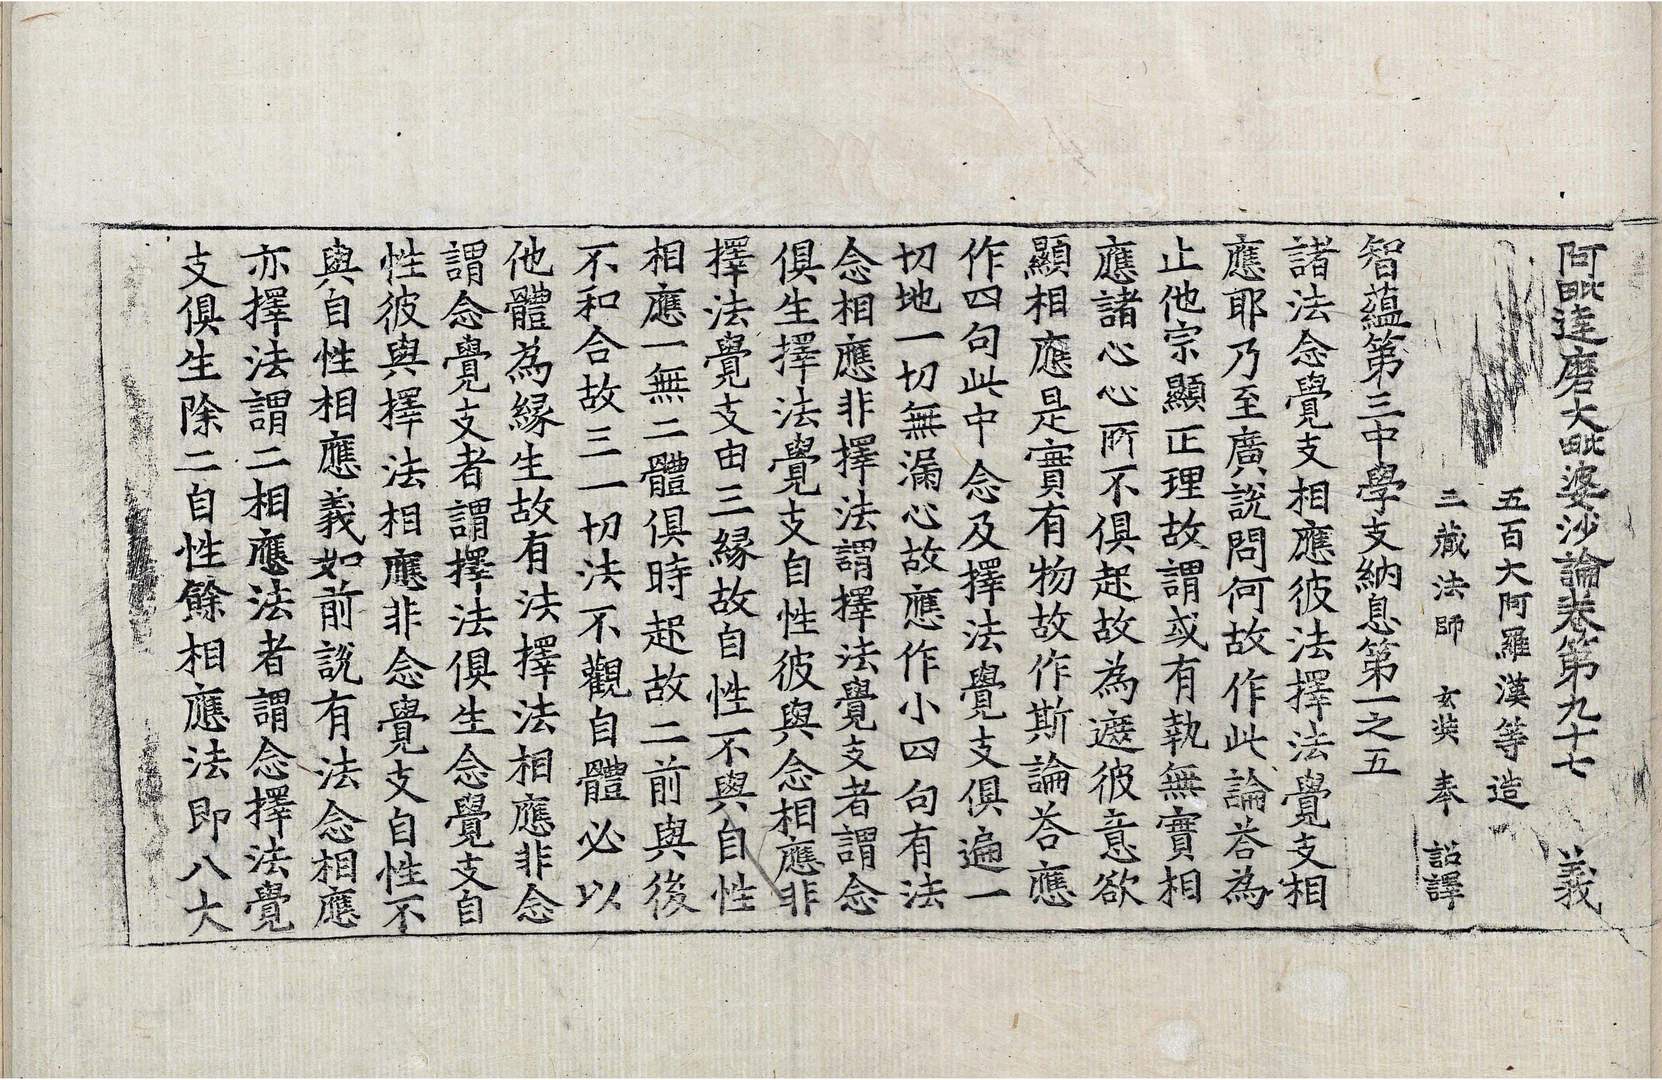 阿毗達磨大毗婆沙論卷第九十七 義
五百大阿羅漢等造
三藏法師 玄奘 奉 詔譯
智蘊第三中學支納息第一之五
諸法念覺支相應彼法擇法覺支相
應耶乃至廣說問何故作此論荅為
止他宗顯正理故謂或有執無實相
應諸心心所不俱起故為遮彼意欲
顯相應是實有物故作斯論荅應
作四句此中念及擇法覺支俱遍一
切地一切無漏心故應作小四句有法
念相應非擇法謂擇法覺支者謂念
俱生擇法覺支自性彼與念相應非
擇法覺支由三緣故自性不與自性
相應一無二體俱時起故二前與後
不和合故三一切法不觀自體必以
他體為緣生故有法擇法相應非念
謂念覺支者謂擇法俱生念覺支自
性彼與擇法相應非念覺支自性不
與自性相應義如前說有法念相應
亦擇法謂二相應法者謂念擇法覺
支俱生除二自性餘相應法即八大